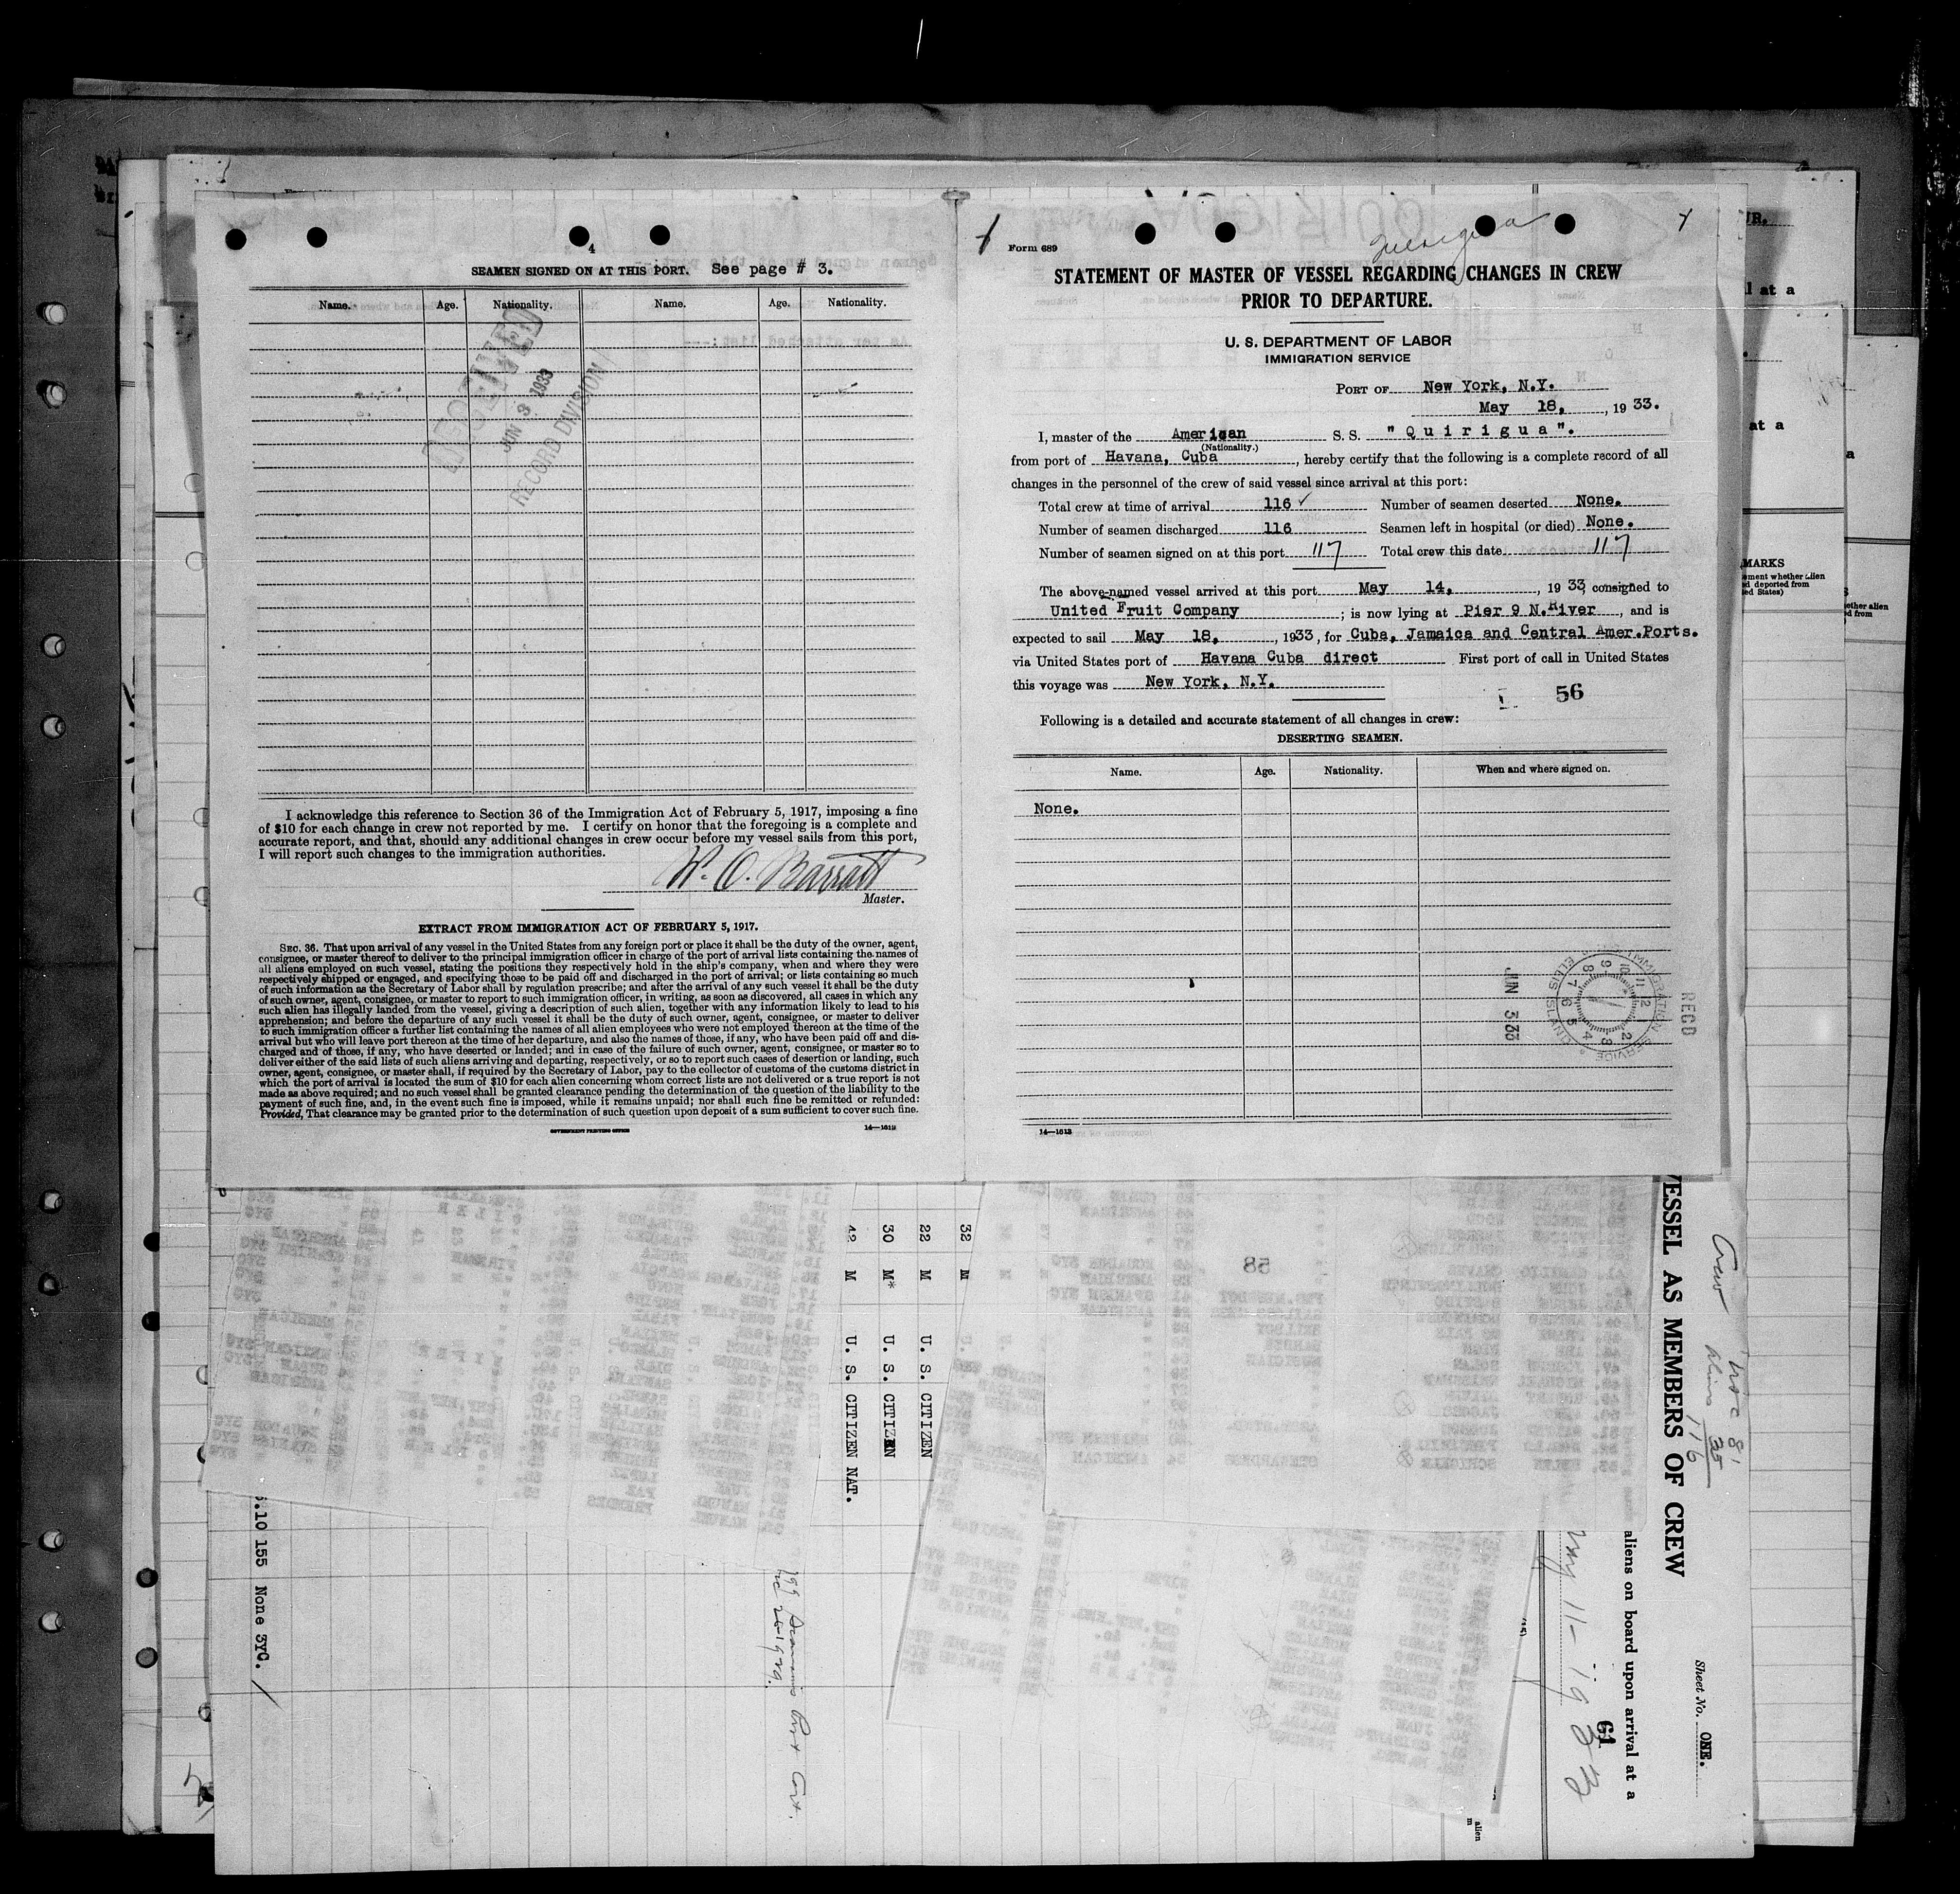 4
SEAMEN SIGNED ON AT THIS PORT. See page # 3.
Name. Age. Nationality. Name. Age. Nationality.
RECEIVED
JUN 3 1933
RECORD DIVISION
I acknowledge this reference to Section 36 of the Immigration Act of February 5, 1917, imposing a fine
of $10 for each change in crew not reported by me. I certify on honor that the foregoing is a complete and
accurate report, and that, should any additional changes in crew occur before my vessel sails from this port,
I will report such changes to the immigration authorities.
W. O. Barratt
Master.
EXTRACT FROM IMMIGRATION ACT OF FEBRUARY 5, 1917.
SEC. 36. That upon arrival of any vessel in the United States from any foreign port or place it shall be the duty of the owner, agent,
consignee, or master thereof to deliver to the principal immigration officer in charge of the port of arrival lists containing the names of
all aliens employed on such vessel, stating the positions they respectively hold in the ship's company, when and where they were
respectively shipped or engaged, and specifying those to be paid off and discharged in the port of arrival; or lists containing so much
of such information as the Secretary of Labor shall by regulation prescribe; and after the arrival of any such vessel it shall be the duty
of such owner, agent, consignee, or master to report to such immigration officer, in writing, as soon as discovered, all cases in which any
such alien has illegally landed from the vessel, giving a description of such alien, together with any information likely to lead to his
apprehension; and before the departure of any such vessel it shall be the duty of such owner, agent, consignee, or master to deliver
to such immigration officer a further list containing the names of all alien employees who were not employed thereon at the time of the
arrival but who will leave port thereon at the time of her departure, and also the names of those, if any, who have been paid off and dis-
charged and of those, if any, who have deserted or landed; and in case of the failure of such owner, agent, consignee, or master so to
deliver either of the said lists of such aliens arriving and departing, respectively, or so to report such cases of desertion or landing, such
owner, agent, consignee, or master shall, if required by the Secretary of Labor, pay to the collector of customs of the customs district in
which the port of arrival is located the sum of $10 for each alien concerning whom correct lists are not delivered or a true report is not
made as above required; and no such vessel shall be granted clearance pending the determination of the question of the liability to the
payment of such fine, and, in the event such fine is imposed, while it remains unpaid; nor shall such fine be remitted or refunded:
Provided, That clearance may be granted prior to the determination of such question upon deposit of a sum sufficient to cover such fine.
GOVERNMENT PRINTING OFFICE 14—1613
Form 689
Quirigua
STATEMENT OF MASTER OF VESSEL REGARDING CHANGES IN CREW
PRIOR TO DEPARTURE.
U. S. DEPARTMENT OF LABOR
IMMIGRATION SERVICE
PORT OF New York, N.Y.
May 18, , 1933.
I, master of the American S. S. "Quirigua".
(Nationality.)
from port of Havana, Cuba , hereby certify that the following is a complete record of all
changes in the personnel of the crew of said vessel since arrival at this port:
Total crew at time of arrival 116 ✓ Number of seamen deserted None.
Number of seamen discharged 116 Seamen left in hospital (or died) None.
Number of seamen signed on at this port 117 Total crew this date 117
The above-named vessel arrived at this port May 14, , 1933, consigned to
United Fruit Company ; is now lying at Pier 9 N.River , and is
expected to sail May 18, , 1933, for Cuba, Jamaica and Central Amer.Ports.
via United States port of Havana Cuba direct First port of call in United States
this voyage was New York, N.Y.
56
Following is a detailed and accurate statement of all changes in crew:
DESERTING SEAMEN.
Name. Age. Nationality. When and where signed on.
None.
RECD
JUN 3 33
IMMIGRATION SERVICE
ELLIS ISLAND
14—1613
32 M
22 M U. S. CITIZEN
30 M* U. S. CITIZEN
42 M U. S. CITIZEN NAT.
58
.10 155 None 3YC.
VESSEL AS MEMBERS OF CREW
aliens on board upon arrival at a
Sheet No. ONE.
61
Crew
81
aliens 35
116
May 11- 1933